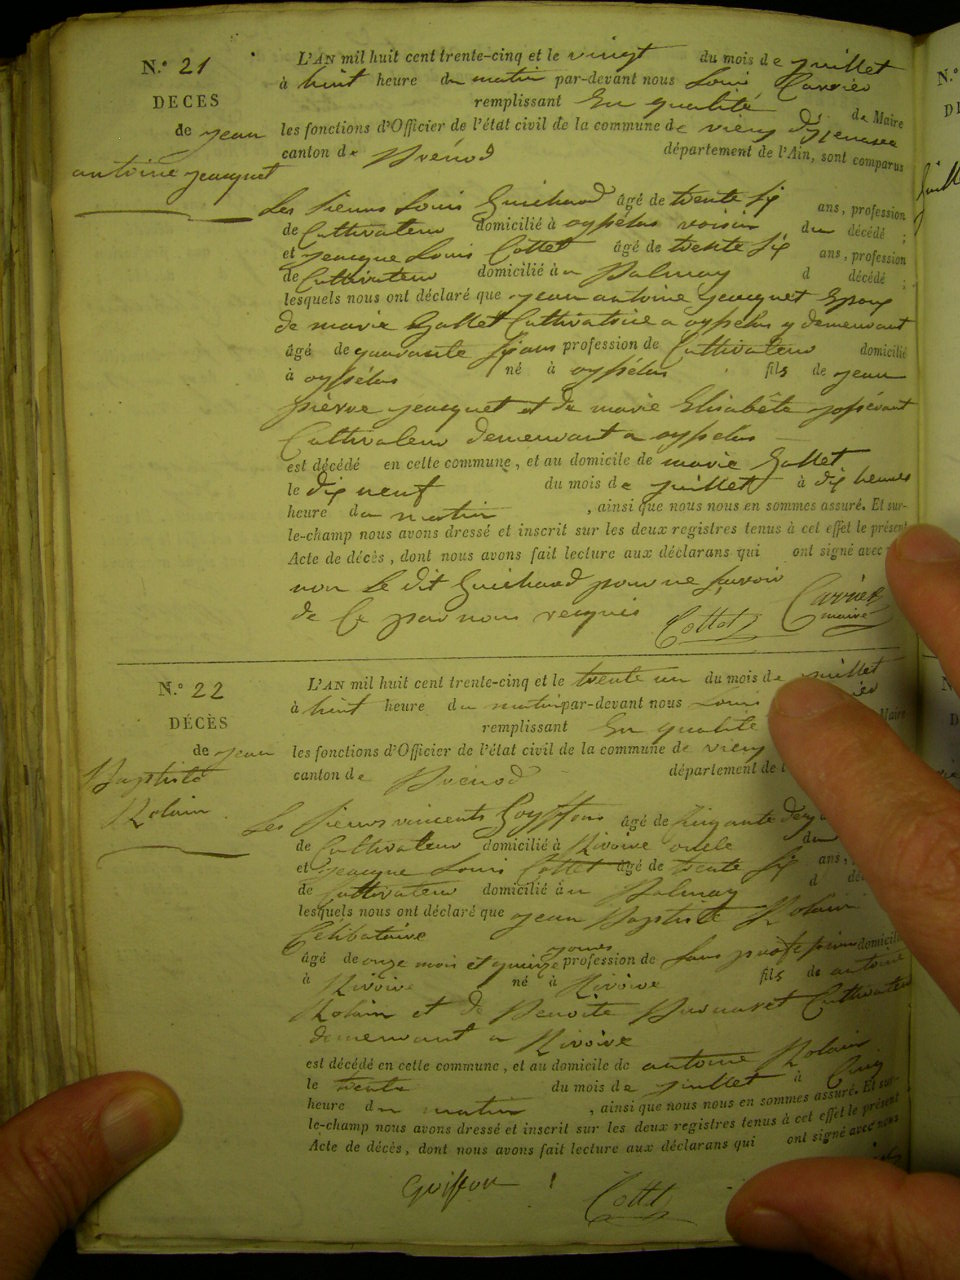 N.° 21
DECES
de jean
antoine jeacquet
L'AN mil huit cent trente-cinq et le vingt du mois de juillet
à huit heure du matin par-devant nous Louis Carrier
remplissant En qualité de Maire
les fonctions d'Officier de l'état civil de la commune de vieu d'yzenave
canton de Brénod département de l'Ain, sont comparus
Les sieurs Louis Guichard âgé de trente six ans, profession
de Cultivateur domicilié à oysselas voisin du décédé ;
et jeacque Louis Cottet âgé de trente six ans, profession
de Cultivateur domicilié à u Balmay d décédé ;
lesquels nous ont déclaré que jean antoine jeacquet Epoux
de marie Gallet Cultivatrice a oysselas y demeurant
âgé de quarante six ans profession de Cultivateur domicilié
à oysselas né à oysselas fils de jean
pierre jeacquet et de marie Elisabête
Cultivateur demeurant a oysselas
est décédé en cette commune, et au domicile de marie Gallet
le dix neuf du mois de juillet à dix heures
heure du matin, ainsi que nous nous en sommes assuré. Et sur-
le-champ nous avons dressé et inscrit sur les deux registres tenus à cet effet le présent
Acte de décès, dont nous avons fait lecture aux déclarans qui ont signé avec
non Le dit Guichard pour ne savoir
de Ce par nous requis Cottet Carrier
maire
N.° 22
DÉCÈS
de jean
Baptiste
Rolain
L'AN mil huit cent trente-cinq et le trente un du mois de juillet
à huit heure du matin par-devant nous Louis
remplissant En qualité Maire
les fonctions d'Officier de l'état civil de la commune de vieu
canton de Brénod département de l
Les sieurs vincents Goyffons âgé de cinquante deux
de Cultivateur domicilié à Rivoire oncle du
et jeacque Louis Cottet âgé de trente six ans,
de Cultivateur domicilié à u Balmay d
lesquels nous ont déclaré que jean Baptiste Rolain
Célibataire
âgé de onze mois et quinze jours profession de Sans profession domicilié
à Rivoire né à Rivoire fils de antoine
Rolain et de Benoite Cultivateur
demeurant a Rivoire
est décédé en cette commune, et au domicile de antoine Rolain
le trente du mois de juillet à Cinq
heure du matin, ainsi que nous nous en sommes assuré. Et sur-
le-champ nous avons dressé et inscrit sur les deux registres tenus à cet effet le présent
Acte de décès, dont nous avons fait lecture aux déclarans qui ont signé avec nous
Goiffon Cottet